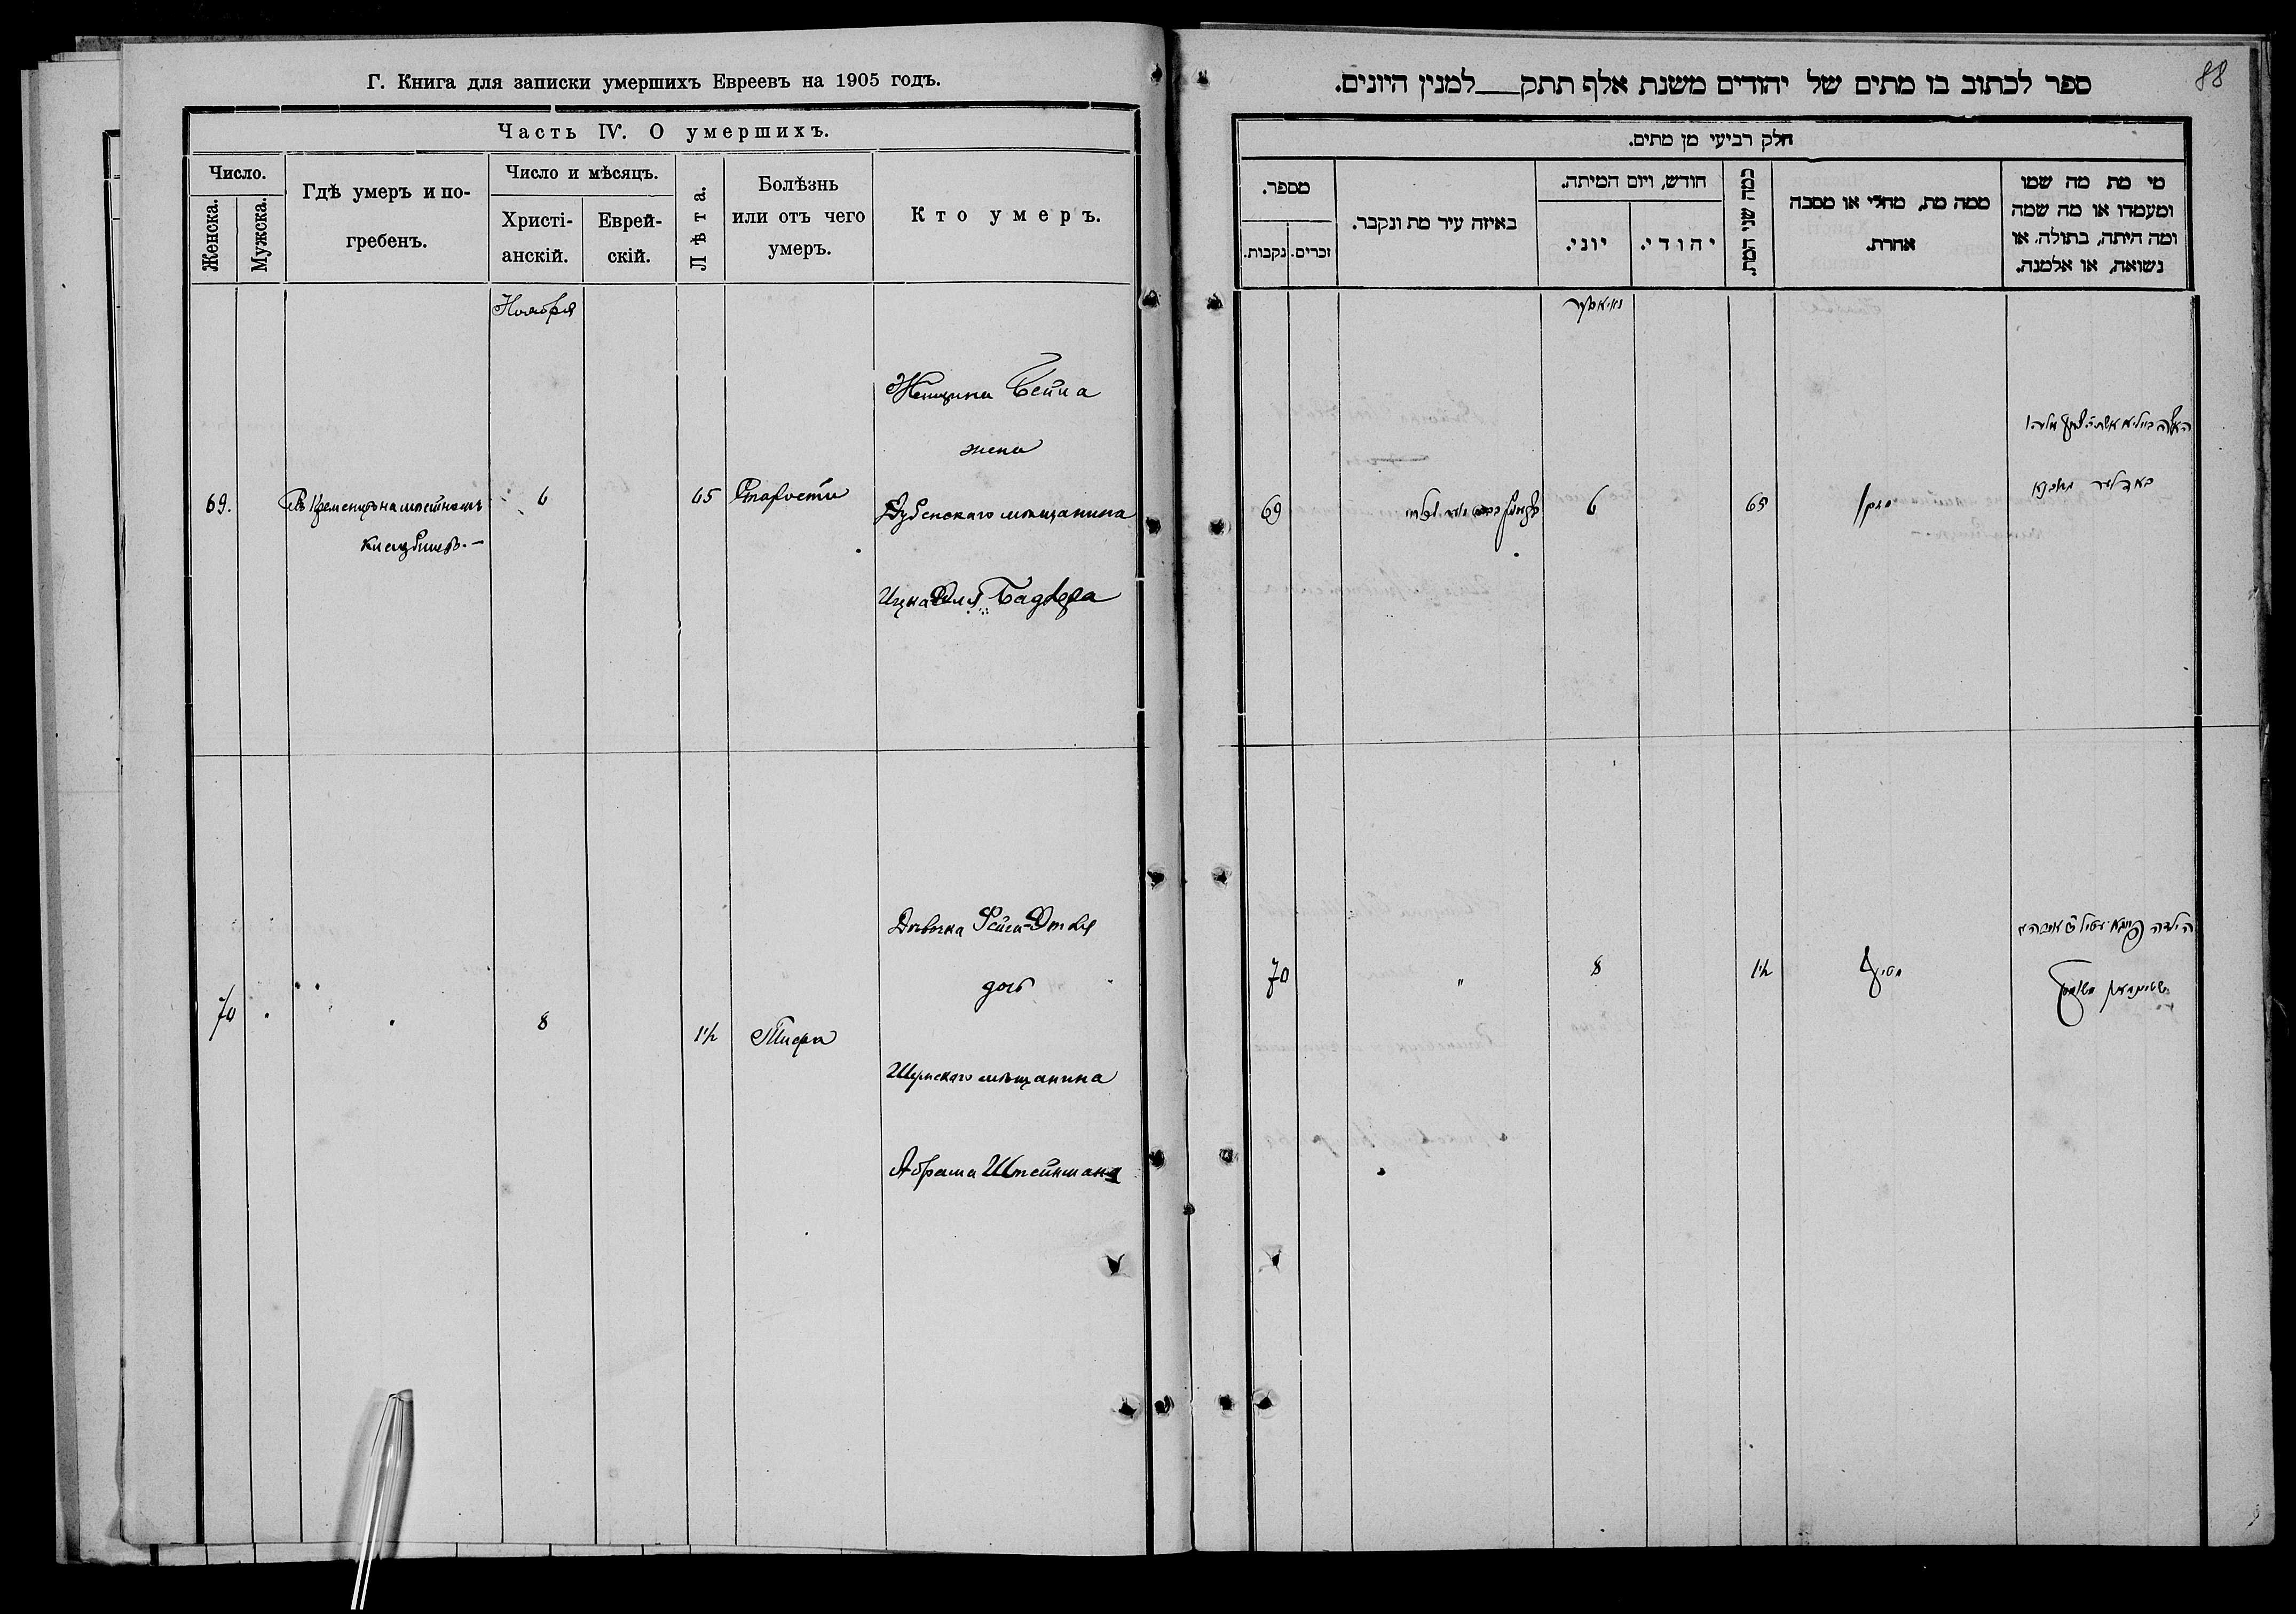 Г. Книга для записки умершихъ Евреевъ на 1905 годъ.
Часть IV. О умершихъ.
Число.
Женска.
Мужска.
Гдѣ умеръ и по-
гребенъ.
Число и мѣсяцъ.
Христі-
анскій.
Еврей-
скій.
Лѣта.
Болѣзнь
или отъ чего
умеръ.
Кто умеръ.
Ноября
69.
Въ Кременцѣ на мѣстномъ
кладбищѣ.—
6
65
Старости
Женщина Бейла
жена
Дубенскаго мѣщанина
Ицка Бадлера
70
" "
"
8
1½
Тифа
Дѣвочка Фейга-Этля
дочь
Шумскаго мѣщанина
Абрама Штейнмана
88
ספר לכתוב בו מתים של יהודים משנת אלף תתק___למנין היונים.
חלק רביעי מן מתים.
מספר.
נקבות.
זכרים.
באיזה עיר מת ונקבר.
חודש, ויום המיתה.
יוני.
יהודי.
כמה שני המת.
ממה מת, מחלי או מסבה
אחרת.
מי מת מה שמו
ומעמדו או מה שמה
ומה היתה, בתולה, או
נשואה, או אלמנה.
נאיאבער
69
6
65
זקן
האשה ביילא אשת
באדלער
70
"
8
1½
הילדה